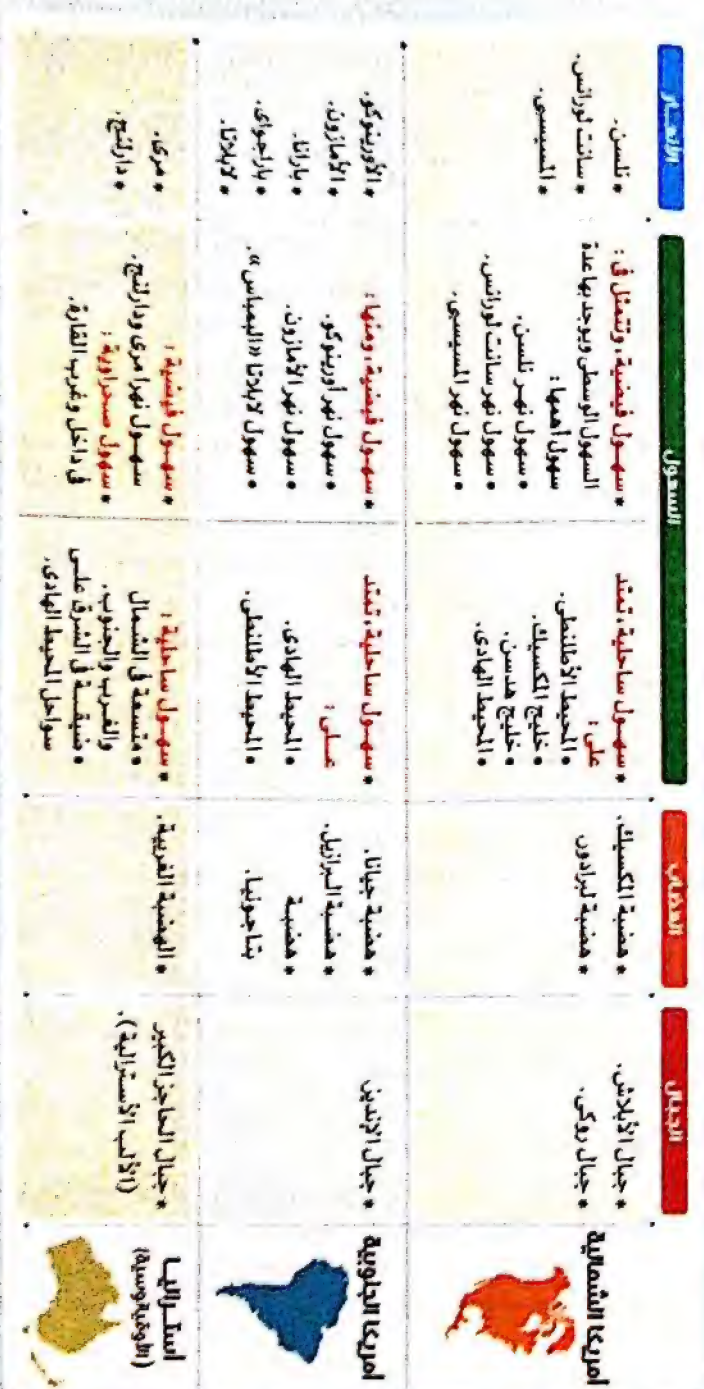 الجبال
الهضاب
السهول
الأنهار
أمريكا الشمالية
* جبال الأبلاش.
* جبال روكى.
* هضبة المكسيك.
* هضبة لبرادور
* سهول ساحلية، تمتد
على:
• المحيط الأطلنطى.
• خليج المكسيك.
• خليج هدسن.
• المحيط الهادى.
* سهول فيضية، وتتمثل فى:
السهول الوسطى ويوجد بها عدة
سهول أهمها:
• سهول نهر نلسن.
• سهول نهر سانت لورانس.
• سهول نهر المسيسبى.
* نلسن.
* سانت لورانس.
* المسيسبى.
أمريكا الجنوبية
* جبال الإنديز
* هضبة جيانا.
* هضبة البرازيل.
* هضبة
بتاجونيا.
* سهول ساحلية، تمتد
على:
• المحيط الهادى.
• المحيط الأطلنطى.
* سهول فيضية، ومنها:
• سهول نهر أورينوكو.
• سهول نهر الأمازون.
• سهول لابلاتا «البمباس».
* الأورينوكو.
* الأمازون.
* بارانا.
* باراجواى.
* لابلاتا.
أستراليا
(الأوقيانوسية)
* جبال الحاجز الكبير
(الألب الأسترالية).
* الهضبة الغربية.
* سهول ساحلية:
• متسعة فى الشمال
والغرب والجنوب.
• ضيقة فى الشرق على
سواحل المحيط الهادى.
* سهول فيضية:
سهول نهرا مرى ودارلنج.
* سهول صحراوية:
فى داخل وغرب القارة.
* مرى.
* دارلنج.